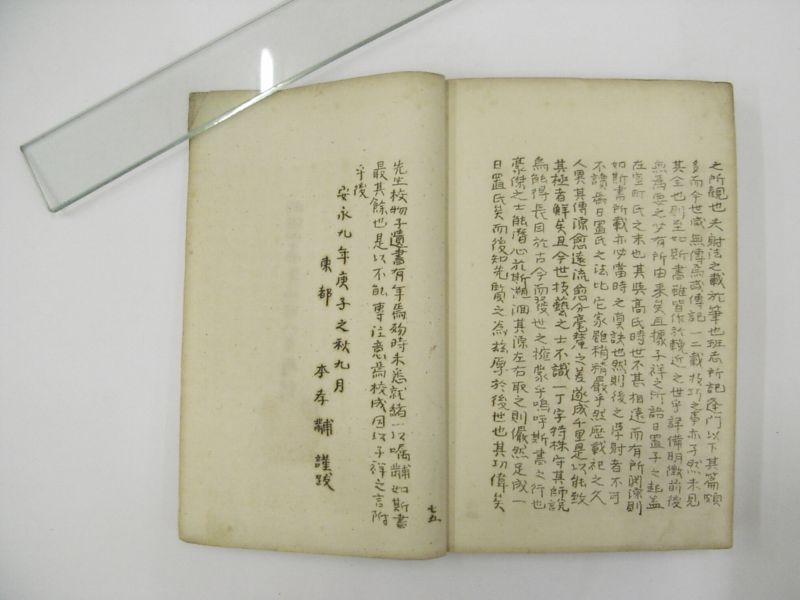 之所観也夫射法之載於筆也班志所記逢門以下其篇頗
多而今世咸無傳焉或傳記一二載技巧之事亦孑然未見
其全也則至如斯書雖皆作於輓近之世乎詳備明徴前後
無焉要之必有所由来矣且據子祥之所語日置子之起蓋
在室町氏之末也其與髙氏時世不甚相遠而有所淵源則
如斯書所載亦必當時之真訣也然則後之學射者不可
不讀焉日置氏之法比它家雖稍稱嚴乎然歴載祀之久
人異其傳源愈遠流愈分毫釐之差遂成千里是以能致
其極者鮮矣且今世技藝之士不識一丁字特株守其師説
烏能得長目於古今而發世之擁蒙乎嗚呼斯書之行也
豪傑之士能潜心於斯溯洄其源左右取之則儼然足成一
日置氏矣而後知先賢之為於原於後世也其功偉矣
七五
先生校物子遺書有年焉歿時未悉就緒以嘱黼如斯書
最其餘也是以不能專注意焉校成因以子祥之言附
于後
安永九年庚子之秋九月
東都 本孝黼謹跋